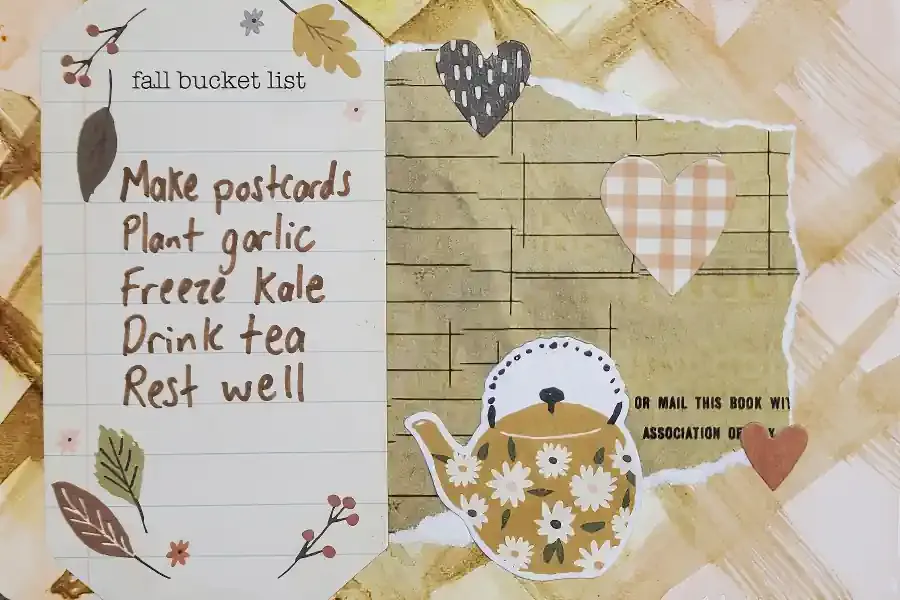 fall bucket list
Make postcards
Plant garlic
Freeze kale
Drink tea
Rest well
OR MAIL THIS BOOK
ASSOCIATION